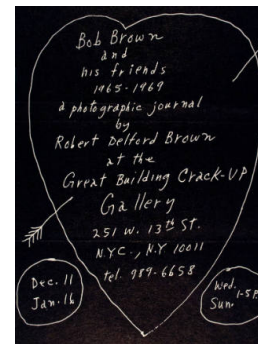 Bob Brown
and
his friends
1965-1969
a photographic journal
by
Robert Delford Brown
at the
Great Building Crack-UP
Gallery
251 W. 13th ST.
N.Y.C., N.Y 10011
tel. 989-6658
Dec. 11
Jan. 16
Wed.
Sun. 1-5 P.